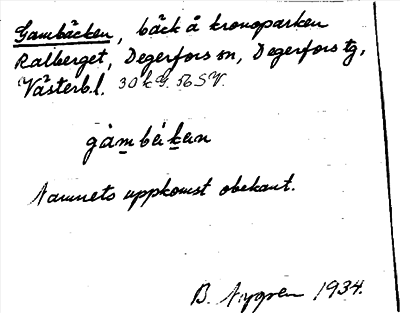 Gambäcken, bäck å kronoparken
Ralberget, Degerfors sn, Degerfors tg,
Västerb.l. 30 k G. 56 SV.
gàmbéken
Namnets uppkomst obekant.
B. Nygren 1934.